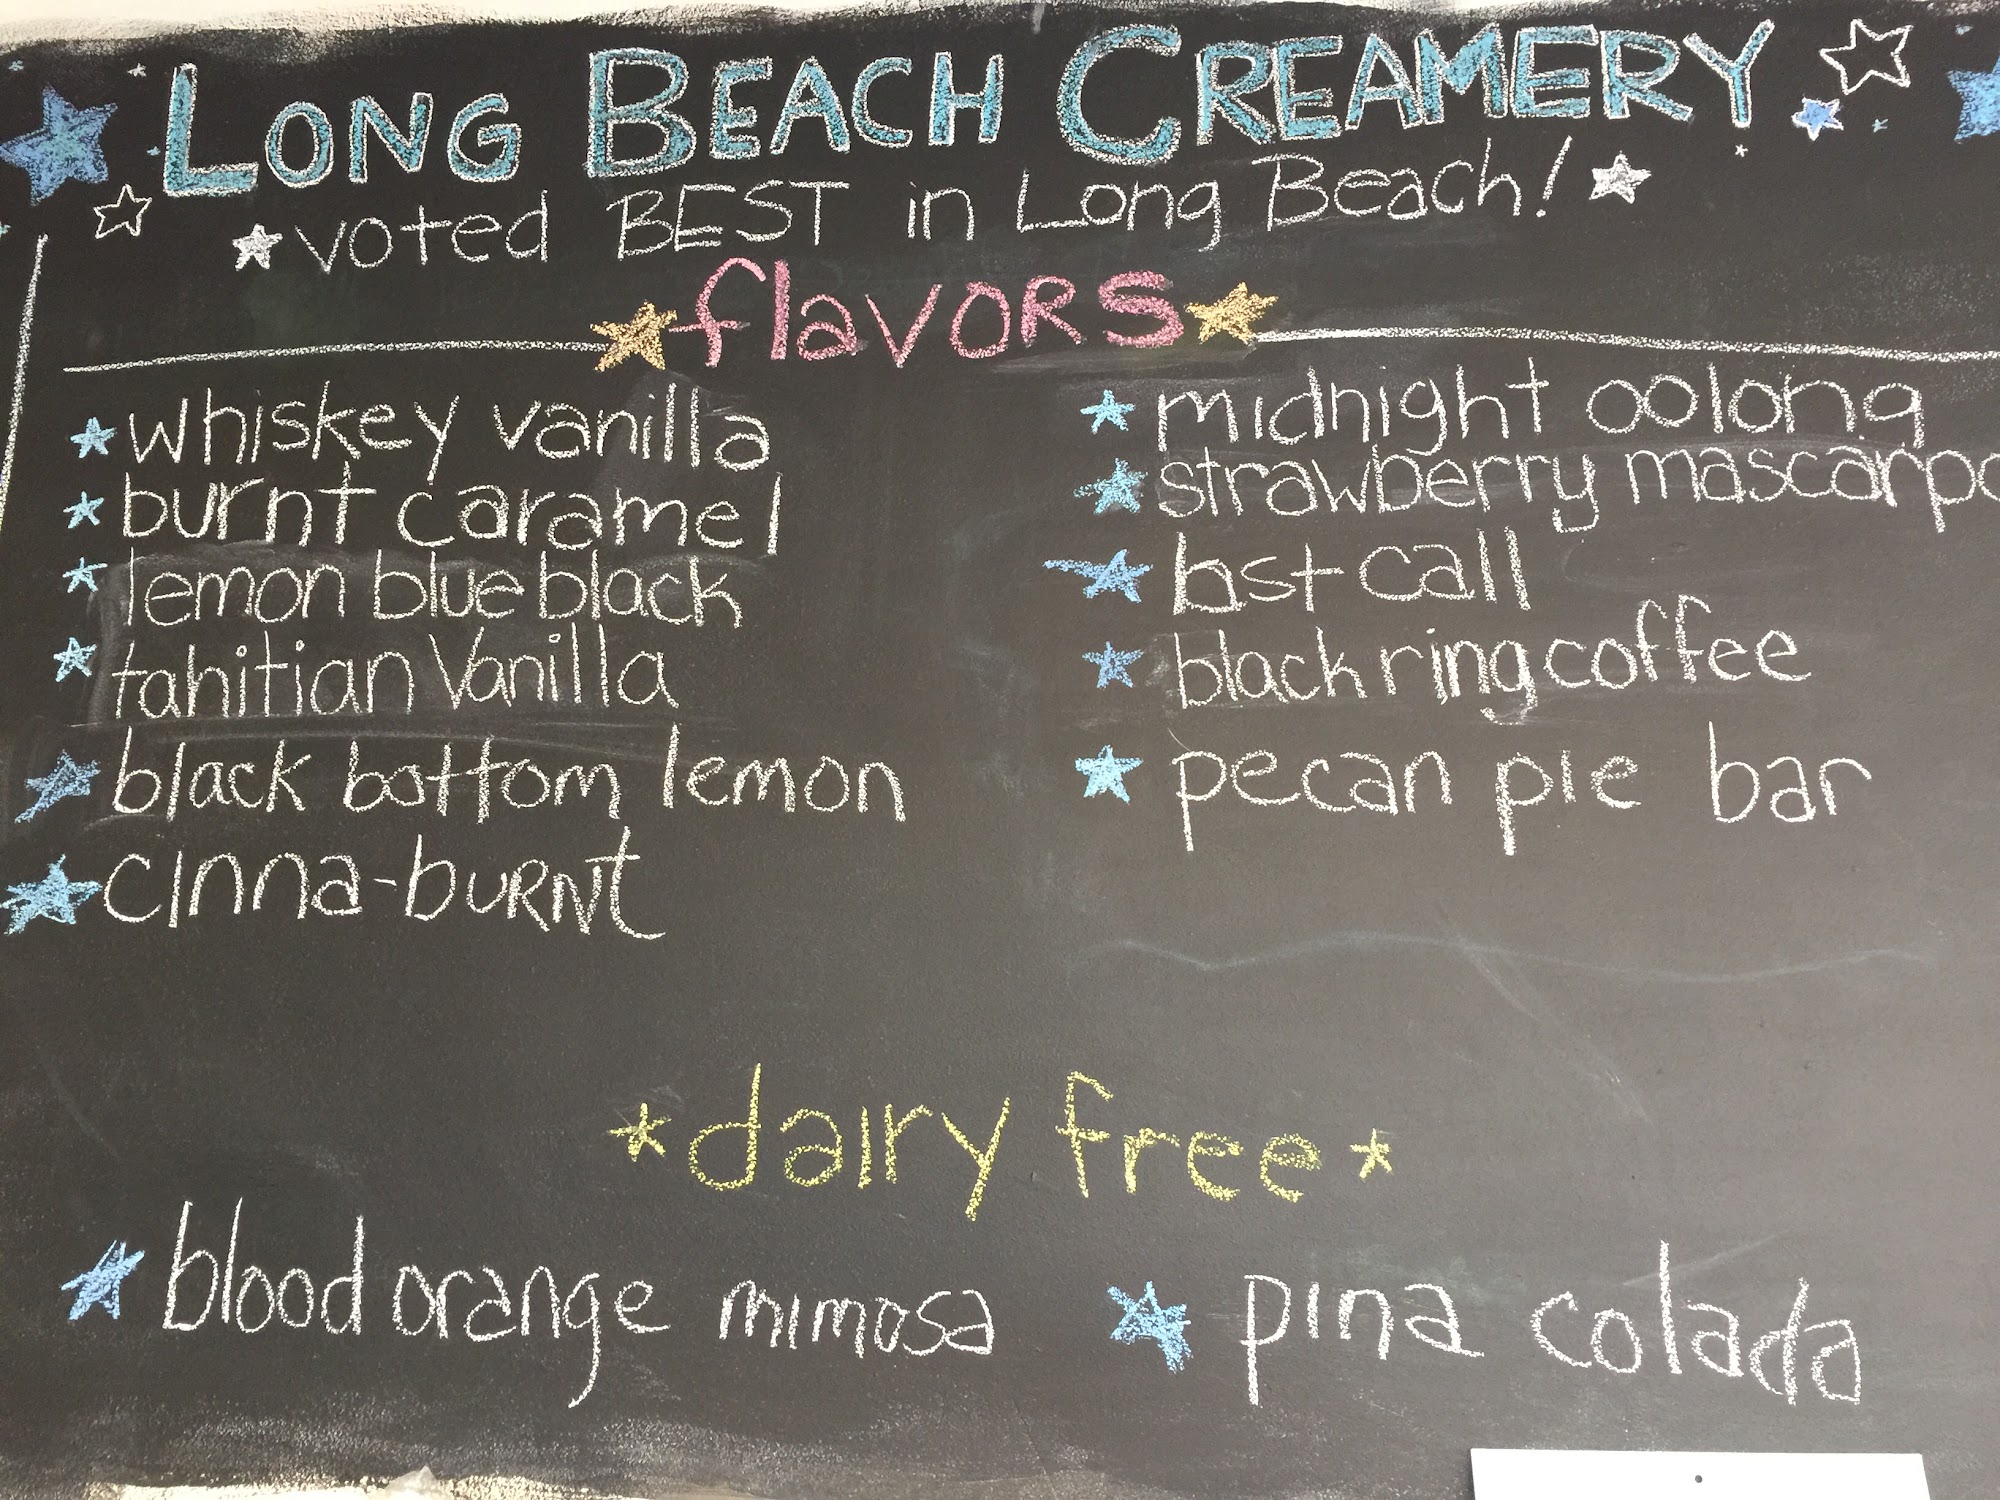 LONG BEACH CREAMERY
voted BEST in Long Beach!
flavors
whiskey vanilla
burnt caramel
lemon blue black
tahitian Vanilla
black bottom lemon
cinna-burnt
midnight oolong
strawberry mascarpo
last call
black ring coffee
pecan pie bar
dairy free
blood orange mimosa
pina colada